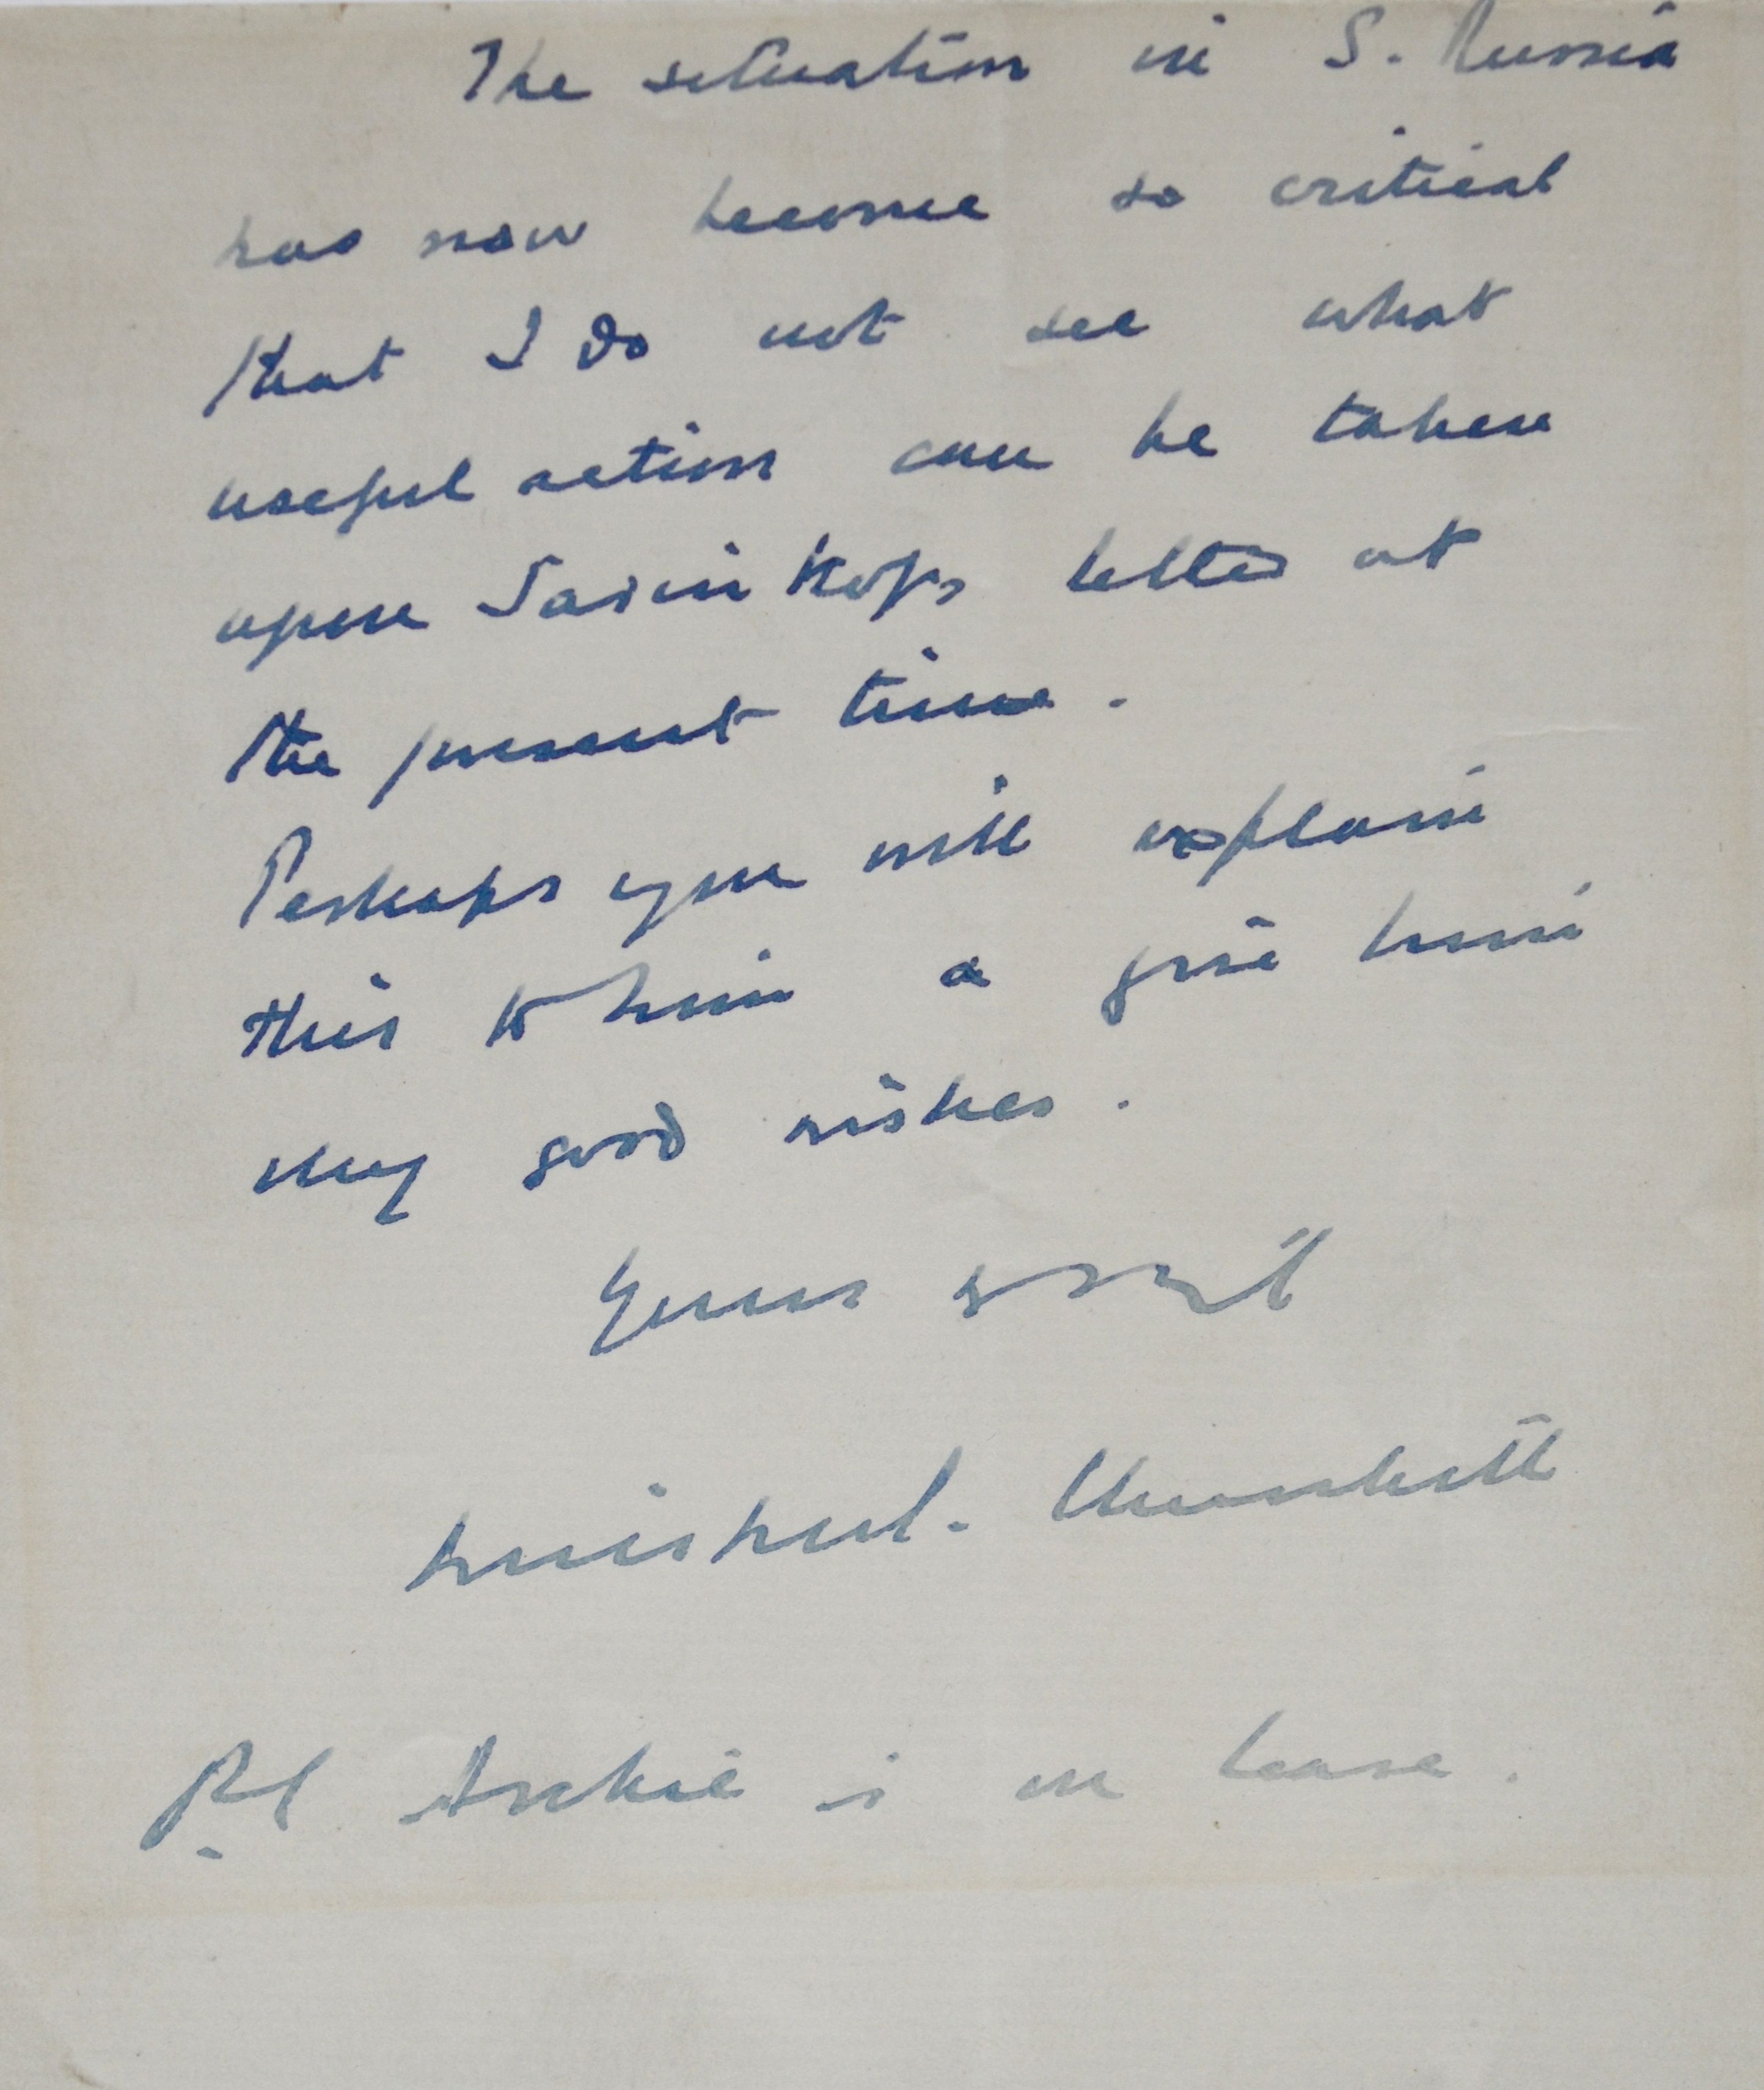 The situation in S. Russia
has now become so critical
that I do not see what
useful action can be taken
upon Savinkoffs letter at
the present time.
Perhaps you will explain
this to him & give him
my good wishes.
Yours
Winston S. Churchill
PS Archie is on leave.